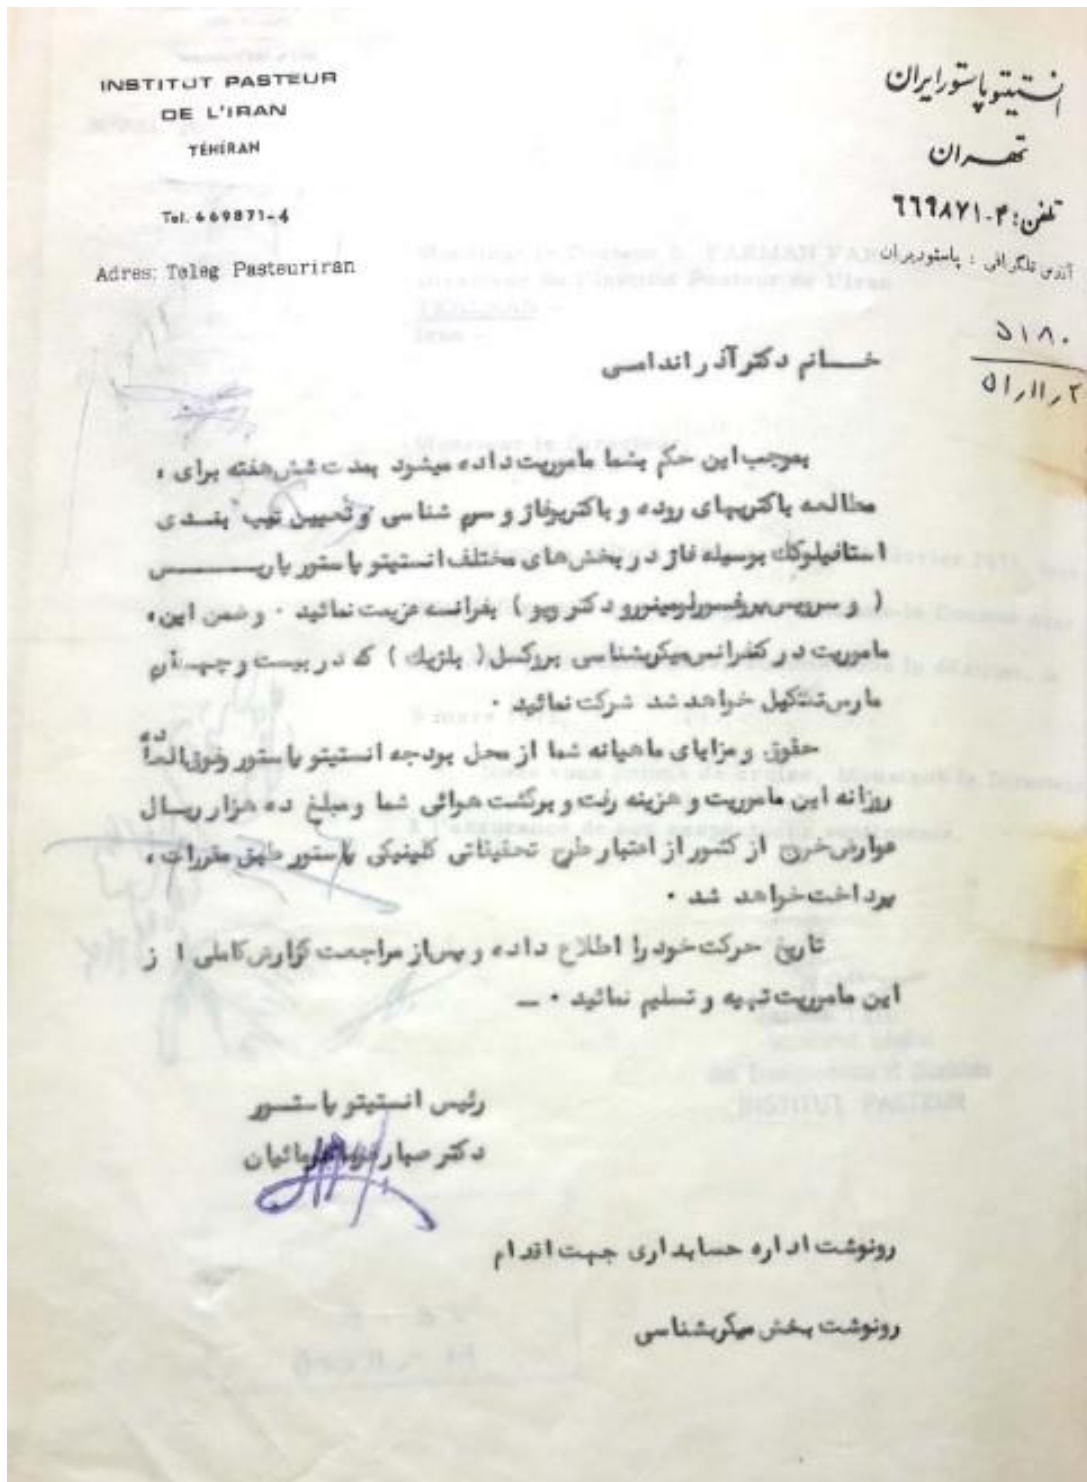 INSTITUT PASTEUR
DE L'IRAN
TÉHÉRAN
Tel. 669871-4
Adres: Teleg Pasteuriran
انستیتو پاستور ایران
تهران
تلفن: ۶۶۹۸۷۱-۴
آدرس تلگرافی : پاستوریران
۵۱۸۰
۵۱٫۱۱٫۲
خانم دکتر آذر اندامی
بموجب این حکم بشما ماموریت داده میشود بمدت شش هفته برای ،
مطالعه باکتریهای روده و باکتریوفاژ و سرم شناسی و تعیین تیپ بندی
استافیلوکك بوسیله فاژ در بخش های مختلف انستیتو پاستور پاریس
( و سرویس پرفسور لومینورو دکتر ویو ) بفرانسه عزیمت نمائید . و ضمن این ،
ماموریت در کنفرانس میکربشناسی بروکسل ( بلژیك ) که در بیست و چهارم
مارس تشکیل خواهد شد شرکت نمائید .
حقوق و مزایای ماهیانه شما از محل بودجه انستیتو پاستور و فوق العاده
روزانه این ماموریت و هزینه رفت و برگشت هوائی شما و مبلغ ده هزار ریال
عوارض خروج از کشور از اعتبار طرح تحقیقاتی کلینیکی پاستور طبق مقررات ،
پرداخت خواهد شد .
تاریخ حرکت خود را اطلاع داده و پس از مراجعت گزارش کاملی از
این ماموریت تهیه و تسلیم نمائید . ــ
رئیس انستیتو پاستور
دکتر صبار فرمانفرمائیان
رونوشت اداره حسابداری جهت اقدام
رونوشت بخش میکربشناسی